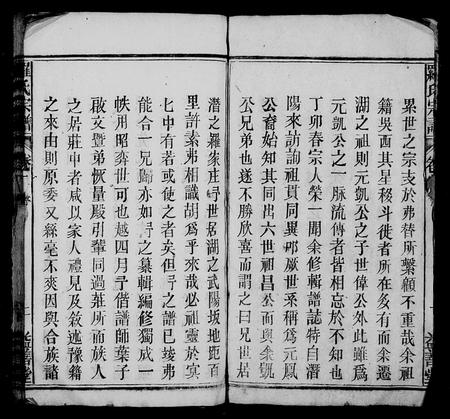 累世之宗支於弗替所繫顧不重哉余祖
籍吳酉其星移斗徙者所在多有而余遷
湖之祖則元凱公之子世偉公外此雖爲
元凱公之一脉流傳者皆相忘於不知也
丁卯春宗人榮一聞余修輯譜誌特自潛
陽來訪詢祖貫同異耶厥世系稱爲元鳳
公裔始知其同出六世祖昌公而與余凱
公兄弟也遂不勝欣喜而謂之曰兄世居
潛之羅家庄㝵世居湖之武陽坂地距百
里許素弗相識胡爲乎來哉必祖靈於冥
七中有者或使之者矣但㝵之譜已竣弗
能合一兄歸亦如㝵之纂輯編修獨成一
帙用昭奕世可也越四月㝵偕譜師葉子
啟文暨弟恢量殿引輩同過莊所而族人
之居莊中者咸以家人禮見及敘述豫籍
之來由則原委又絲毫不爽因與合族諸
羅氏宗譜
卷